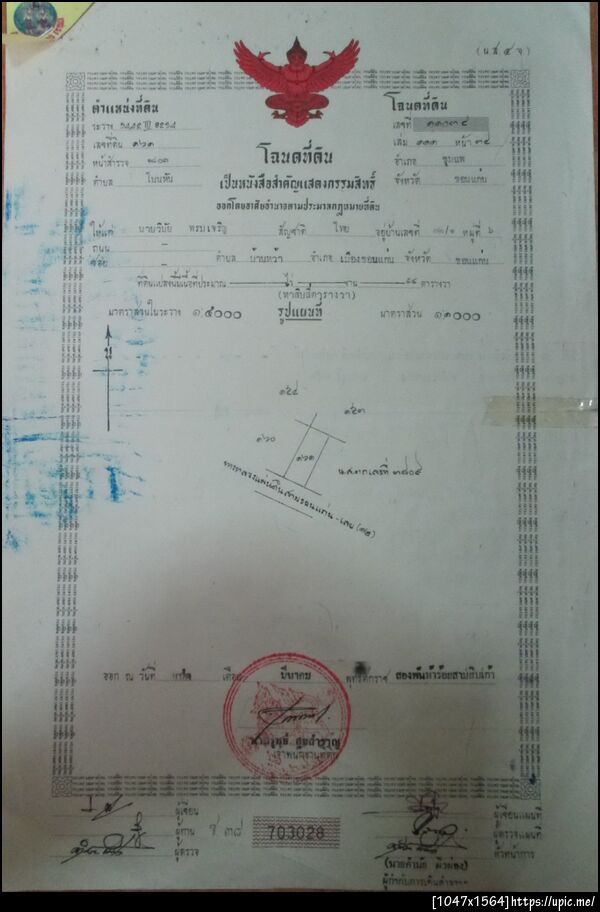 (น ส ๔ จ)
ตำแหน่งที่ดิน
โฉนดที่ดิน
ระวาง
เลขที่
เลขที่ดิน ๙๖๑
เล่ม ๑๑๑ หน้า ๓๔
หน้าสำรวจ
อำเภอ ชุมแพ
ตำบล โนนหัน
จังหวัด ขอนแก่น
โฉนดที่ดิน
เป็นหนังสือสำคัญแสดงกรรมสิทธิ์
ออกโดยอาศัยอำนาจตามประมวลกฎหมายที่ดิน
ให้แก่ นายวิบัย พรมเจริญ สัญชาติ ไทย อยู่บ้านเลขที่ หมู่ที่ ๖
ถนน –
ซอย – ตำบล บ้านหว้า อำเภอ เมืองขอนแก่น จังหวัด ขอนแก่น
ที่ดินแปลงนี้มีเนื้อที่ประมาณ ไร่ งาน ๕๔ ตารางวา
(ห้าสิบสี่ตารางวา)
มาตราส่วนในระวาง ๑:๔๐๐๐ รูปแผนที่ มาตราส่วน ๑:๑๐๐๐
น
๑๕๔
๑๕๓
๙๖๐
๙๖๑
น.ส.๓ก เลขที่ ๓๘๐๕
ทางหลวงแผ่นดินสายขอนแก่น - เลย (๑๒)
ออก ณ วันที่ เดือน มีนาคม พุทธศักราช สองพันห้าร้อยสามสิบเก้า
เจ้าพนักงานที่ดิน
ผู้เขียน
ผู้ทาน
ผู้ตรวจ
703028
ผู้เขียนแผนที่
ผู้ตรวจแผนที่
หัวหน้าการ
[1047x1564]https://upic.me/